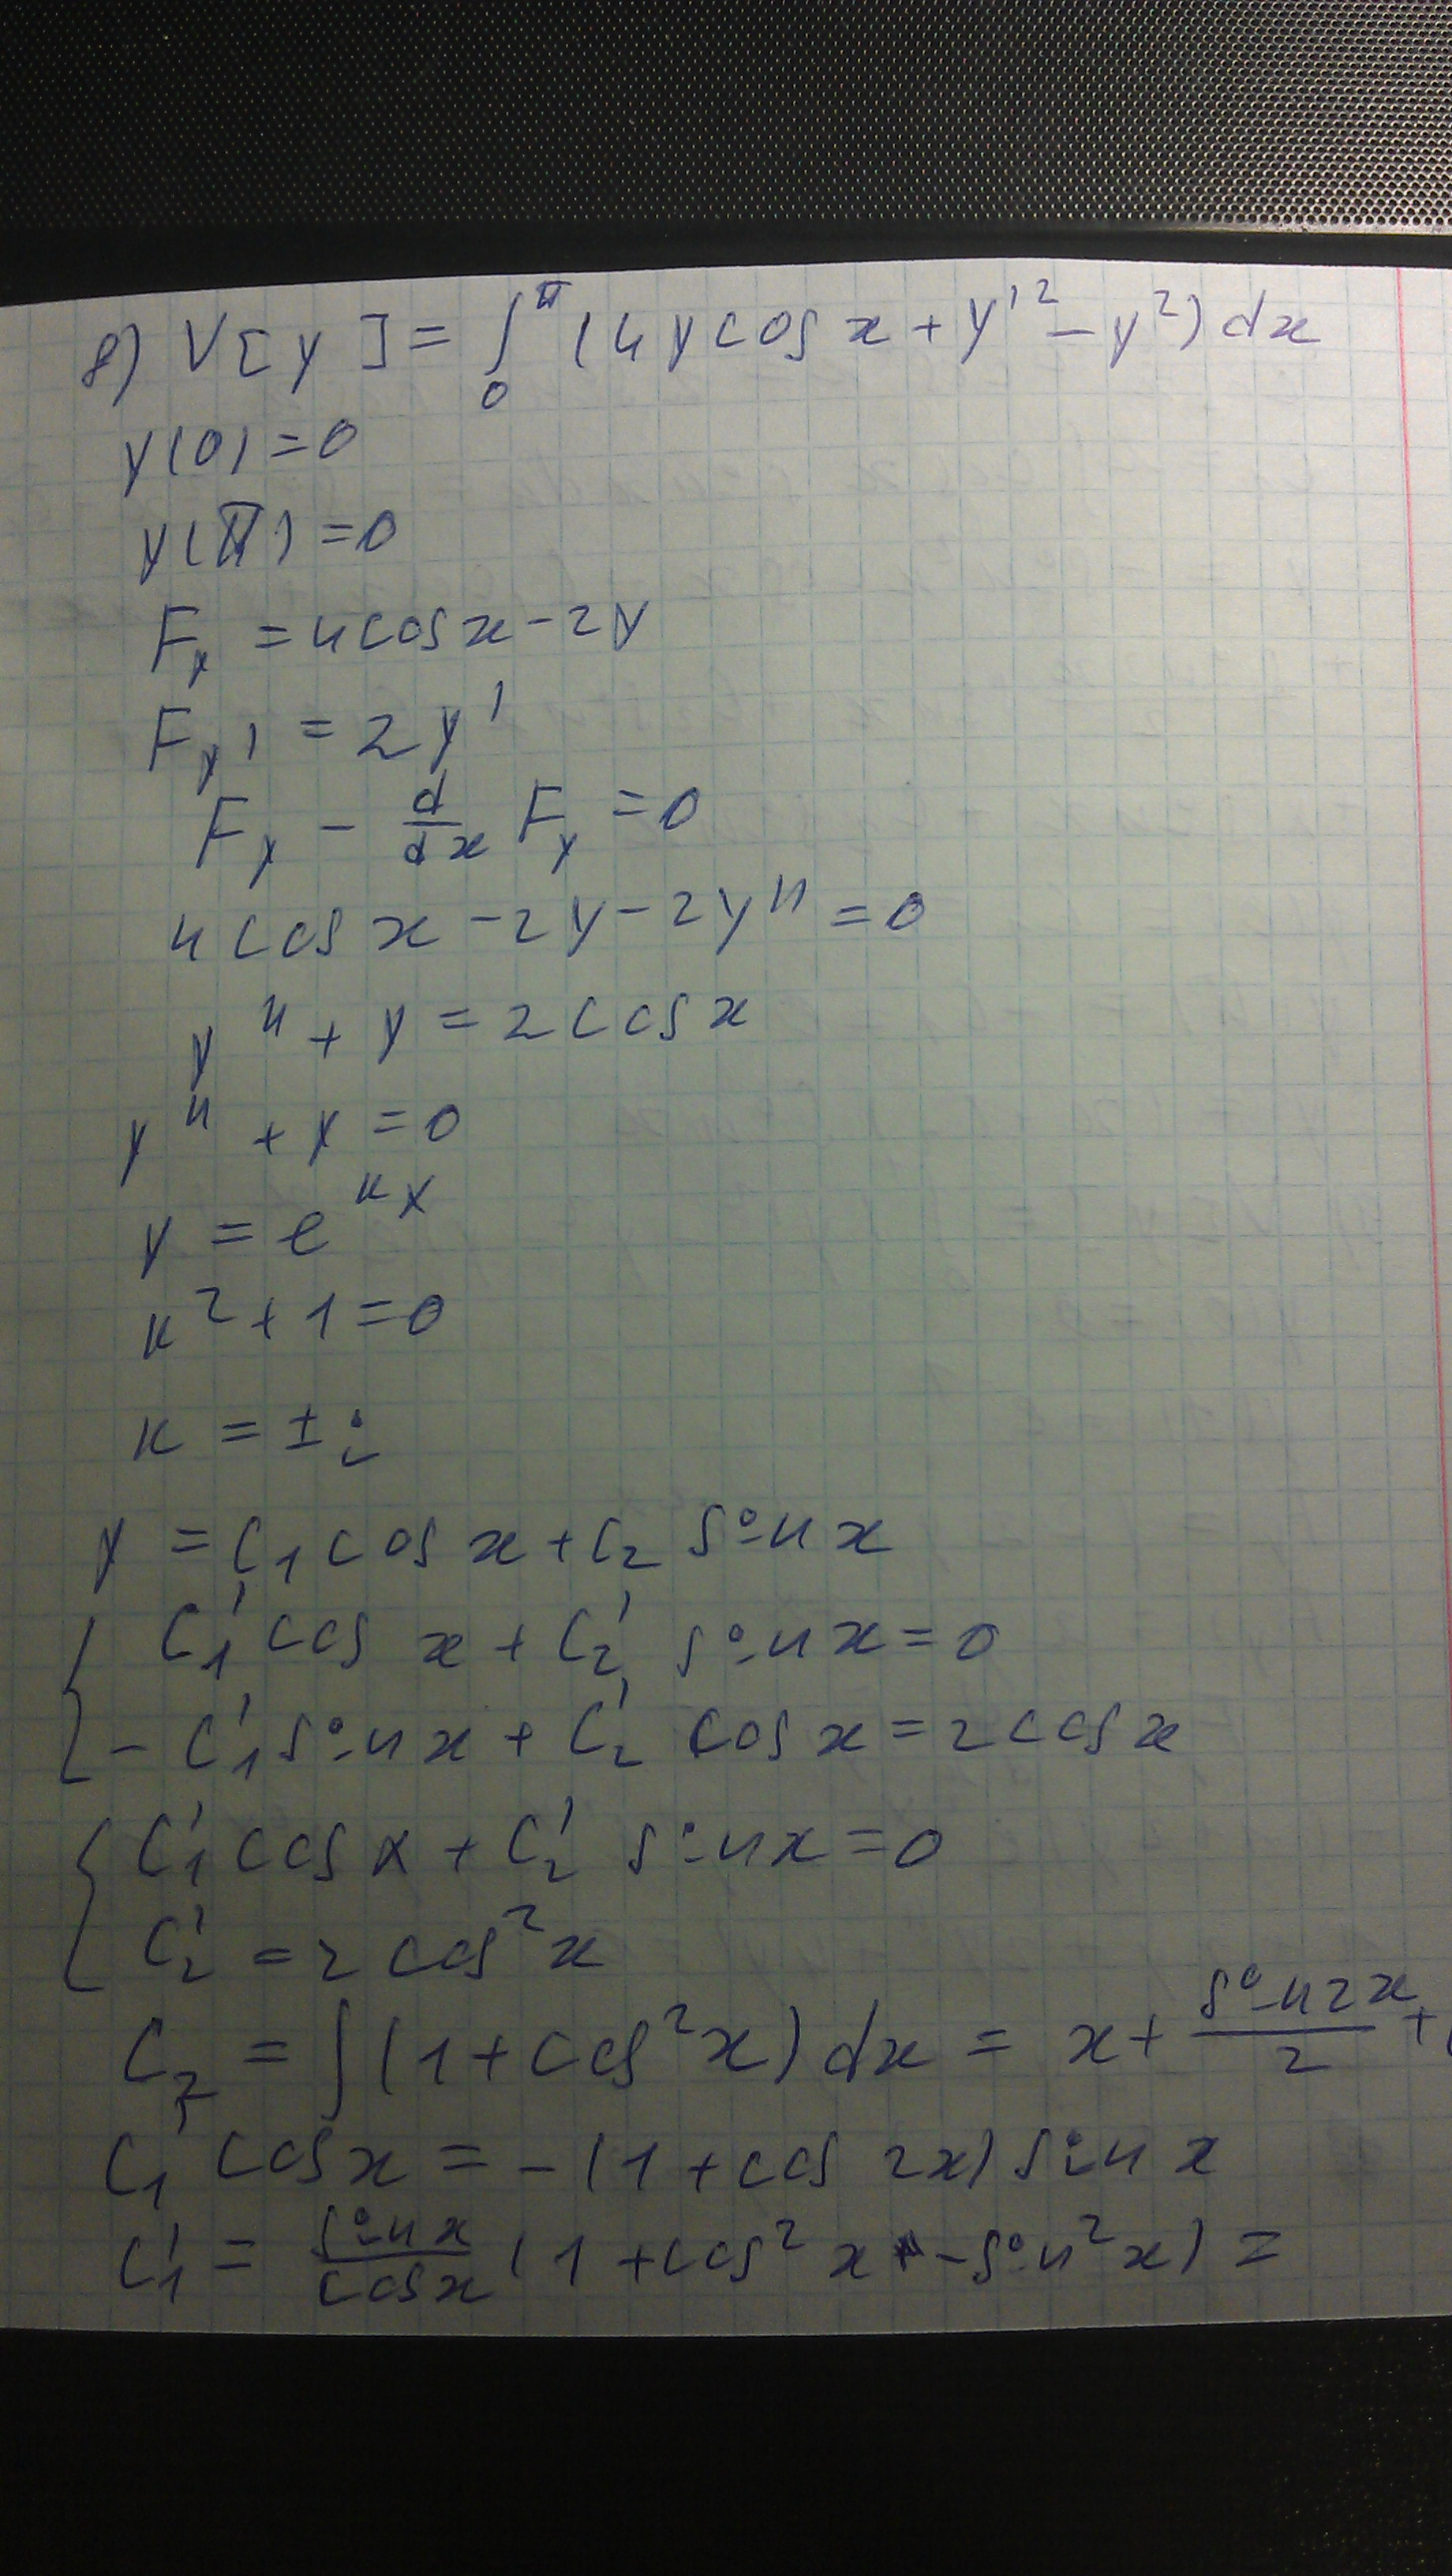 8) V[y] = ∫₀^π (4y cos x + y'² − y²) dx
y(0) = 0
y(π) = 0
F_y = 4cos x − 2y
F_y' = 2y'
F_y − d/dx F_y = 0
4 cos x − 2y − 2y'' = 0
y'' + y = 2 cos x
y'' + y = 0
y = e^{kx}
k² + 1 = 0
k = ± i
y = C₁ cos x + C₂ sin x
{ C₁' cos x + C₂' sin x = 0
− C₁' sin x + C₂' cos x = 2 cos x
{ C₁' cos x + C₂' sin x = 0
C₂' = 2 cos² x
C₂ = ∫ (1 + cos² x) dx = x + sin 2x / 2 +
C₁' cos x = − (1 + cos 2x) sin x
C₁' = sin x / cos x (1 + cos² x − sin² x) =